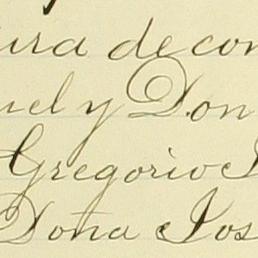 ura de con
uel y Don
Gregorio
Doña Jos